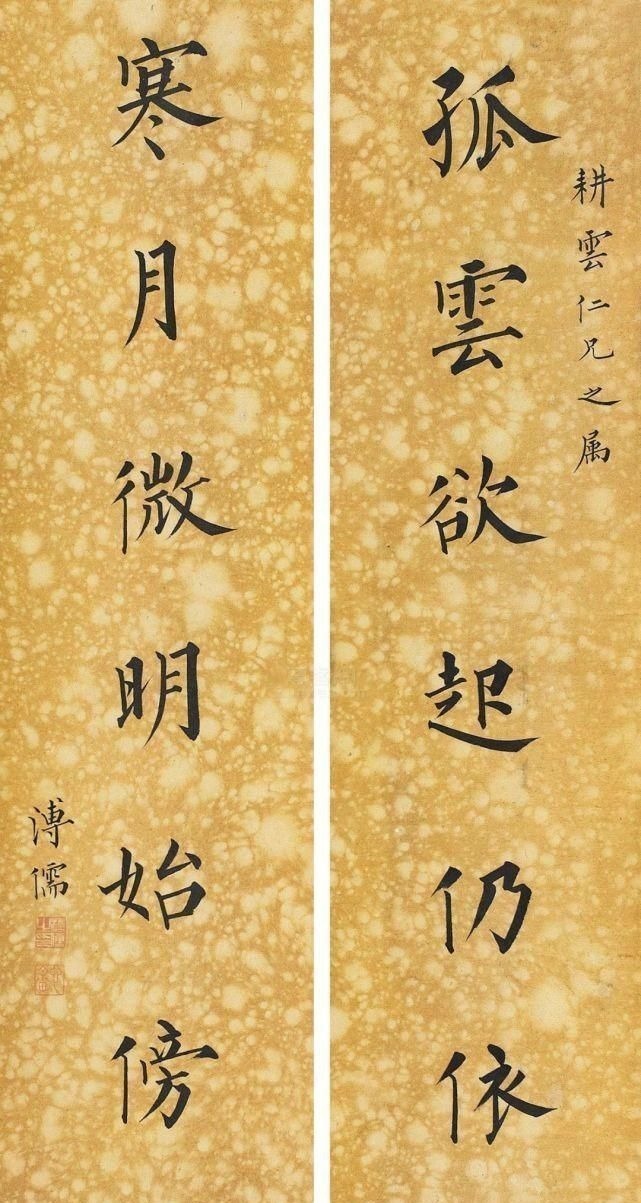 耕雲仁兄之属
孤雲欲起仍依
寒月微明始傍
溥儒